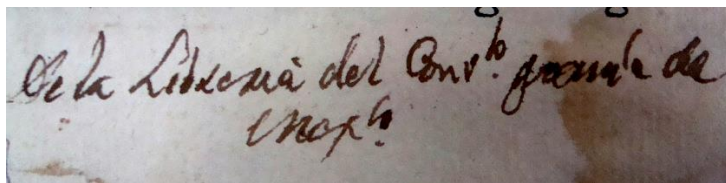 De la Libreria del Conv.to grand.e de
Mex.co